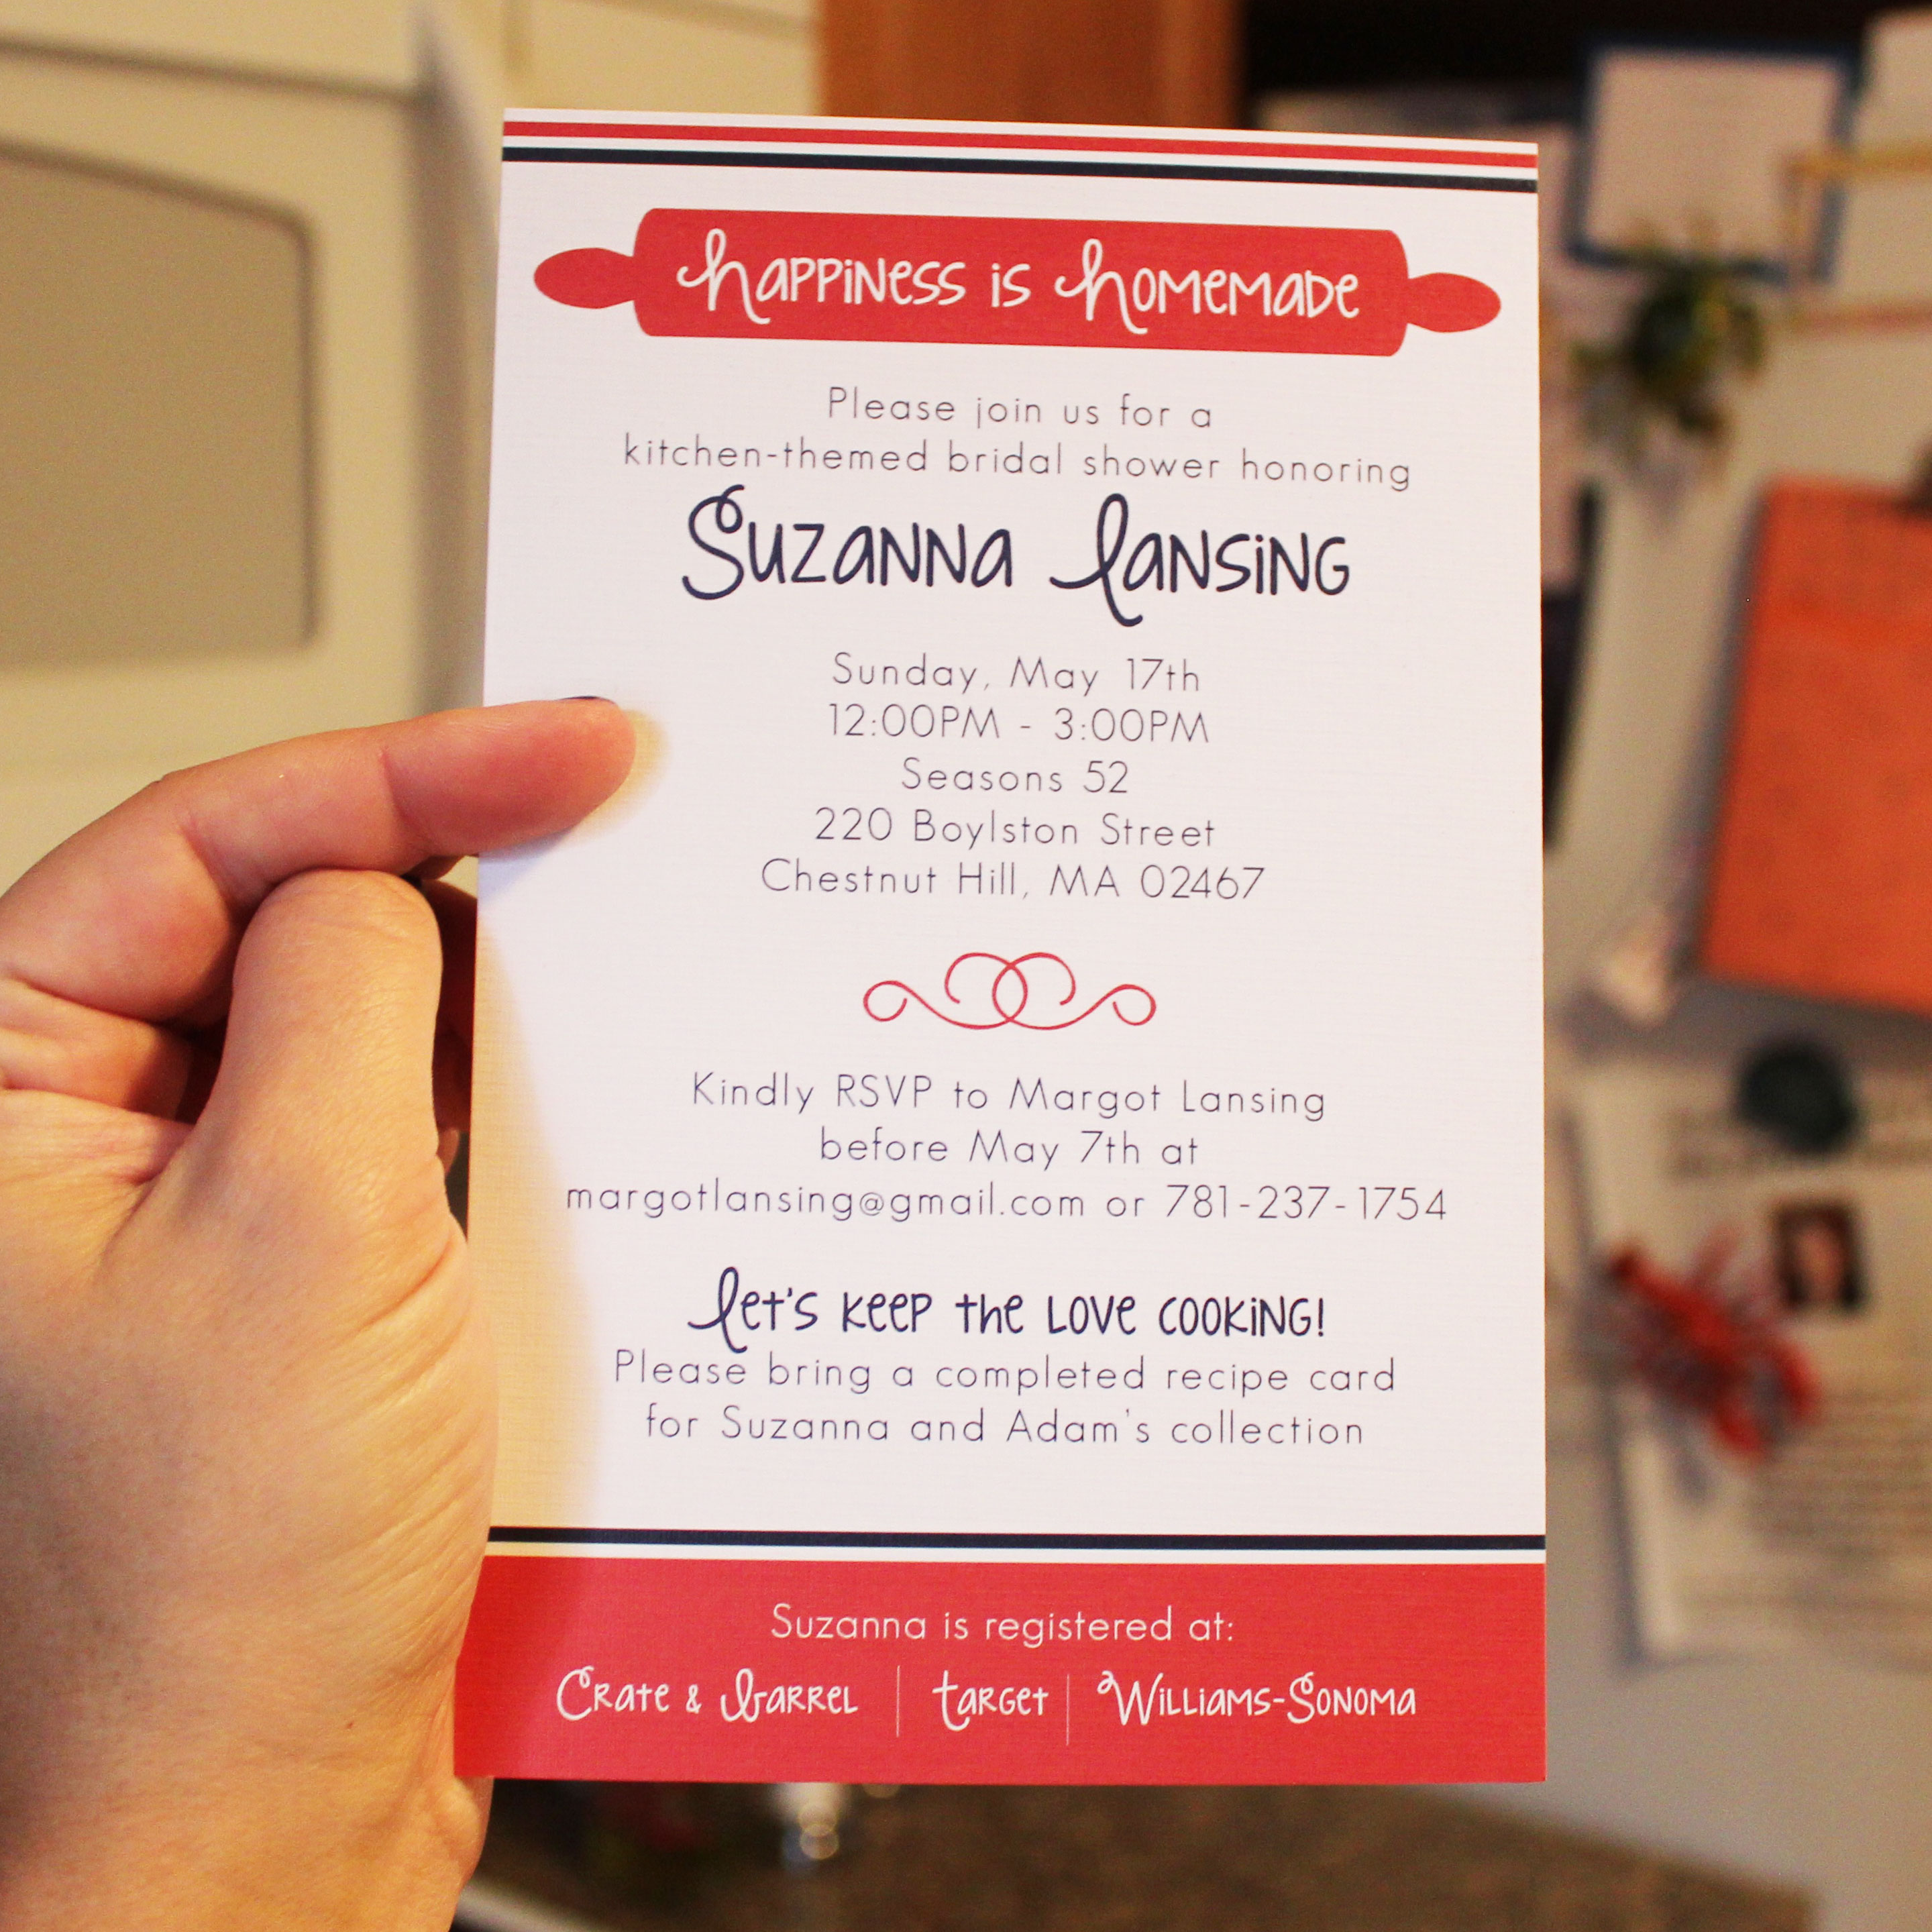 Happiness is Homemade
Please join us for a
kitchen-themed bridal shower honoring
Suzanna Lansing
Sunday, May 17th
12:00PM - 3:00PM
Seasons 52
220 Boylston Street
Chestnut Hill, MA 02467
Kindly RSVP to Margot Lansing
before May 7th at
margotlansing@gmail.com or 781-237-1754
Let's keep the love cooking!
Please bring a completed recipe card
for Suzanna and Adam's collection
Suzanna is registered at:
Crate & Barrel | Target | Williams-Sonoma